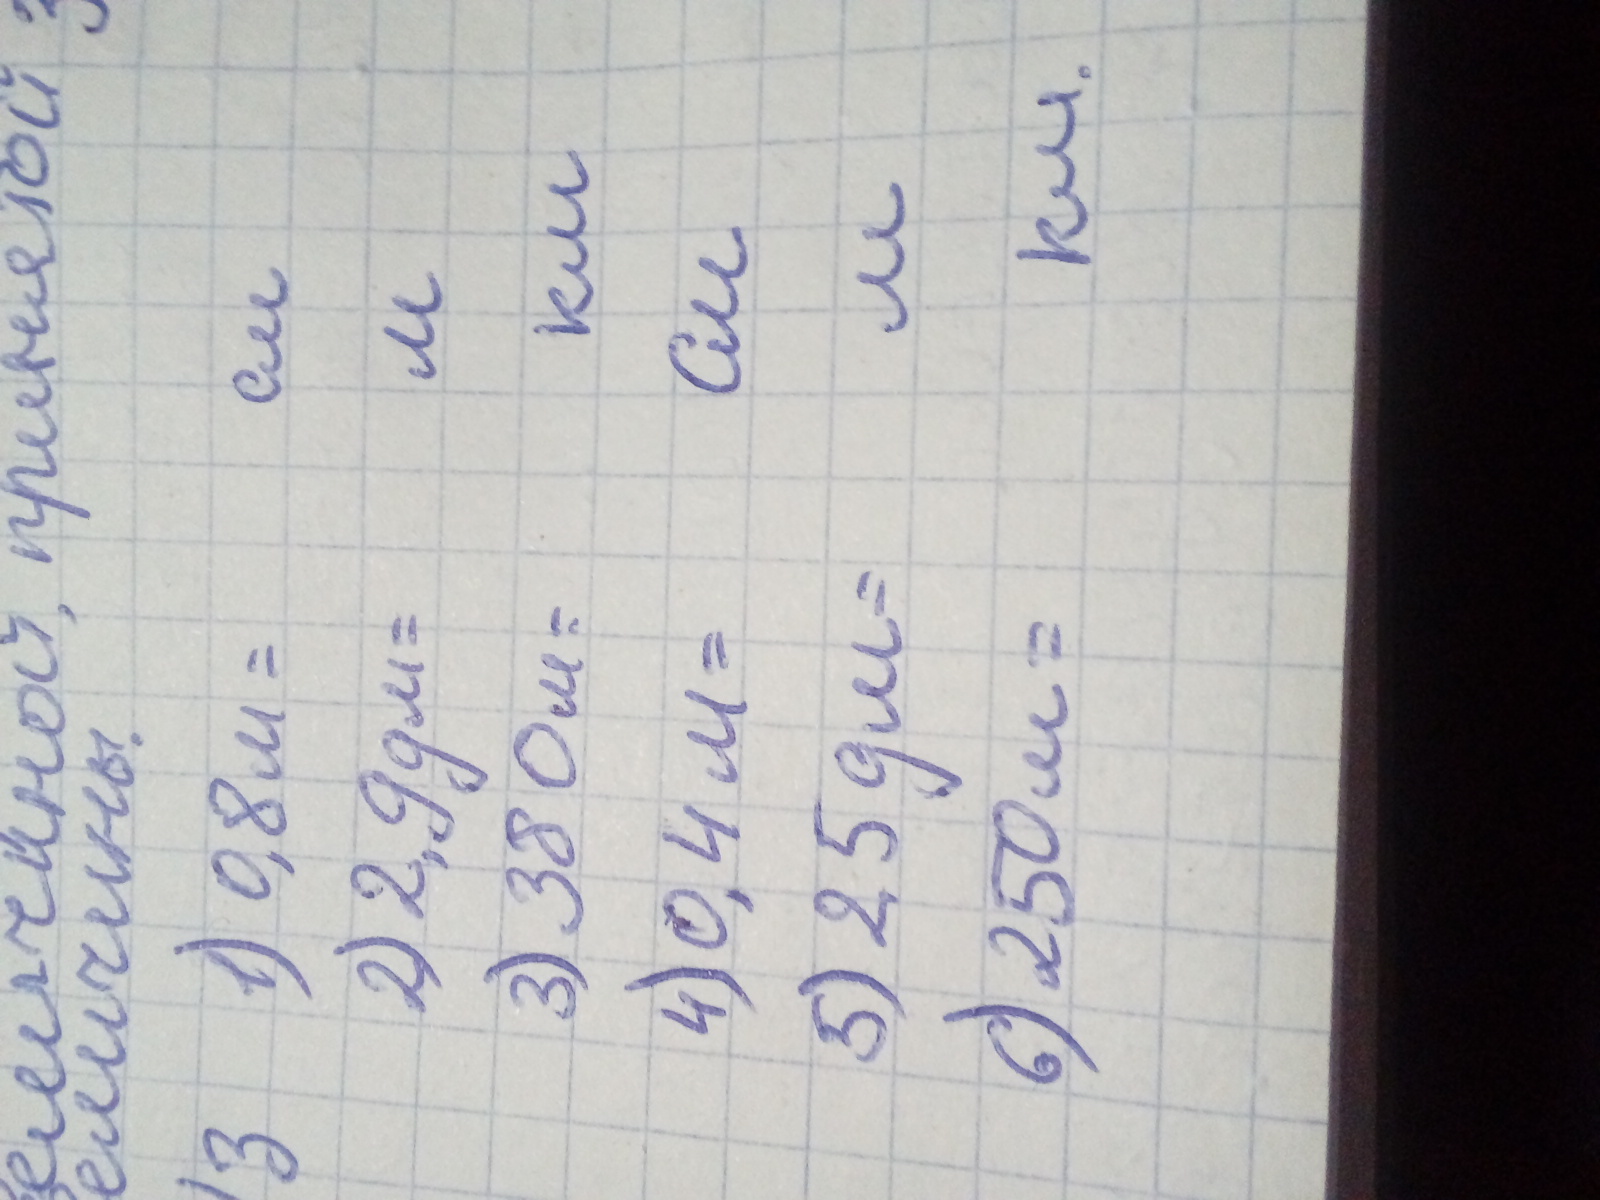 величиной, принятой з
величины.
3 1) 0,8м= см
2) 2,9дм= м
3) 380м= км
4) 0,4м= см
5) 25дм= м
6) 250м= км.